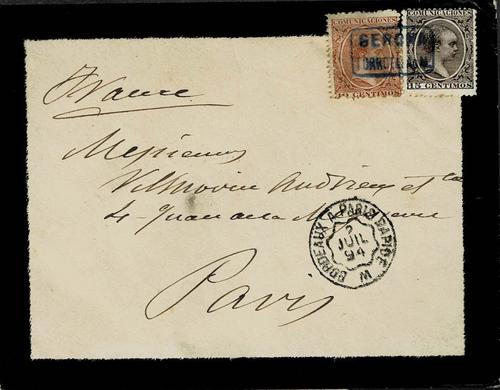 COMUNICACIONES COMUNICACIONES
GERONA
10 CENTIMOS 15 CENTIMOS
France
Messieurs
Vilmorin Andrieux et Cie
4 Quai de la Mégisserie
BORDEAUX A PARIS RAPIDE
2
JUIL
94
Paris